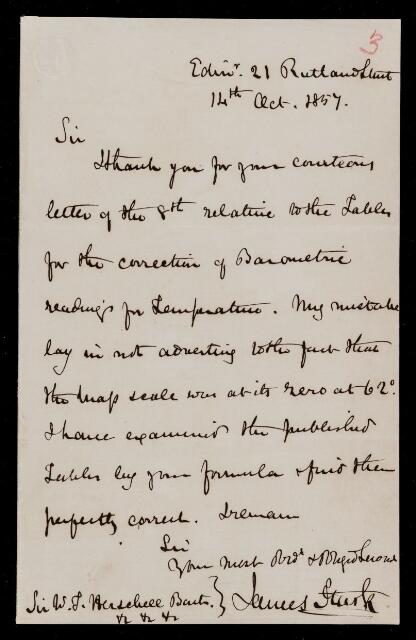 3
Edinr. 21 Rutland Street
14th Oct. 1857.
Sir
I thank you for your courteous
letter of the 8th relative to the Tables
for the correction of Barometric
readings for Temperature. My mistake
lay in not adverting to the fact that
the brass scale was at its zero at 62°.
I have examined the published
Tables by your formula & find them
perfectly correct. I remain
Sir
Your most Obedt & Obliged Servant
James Stark
Sir W. J. Herschell Bart. }
&c &c &c